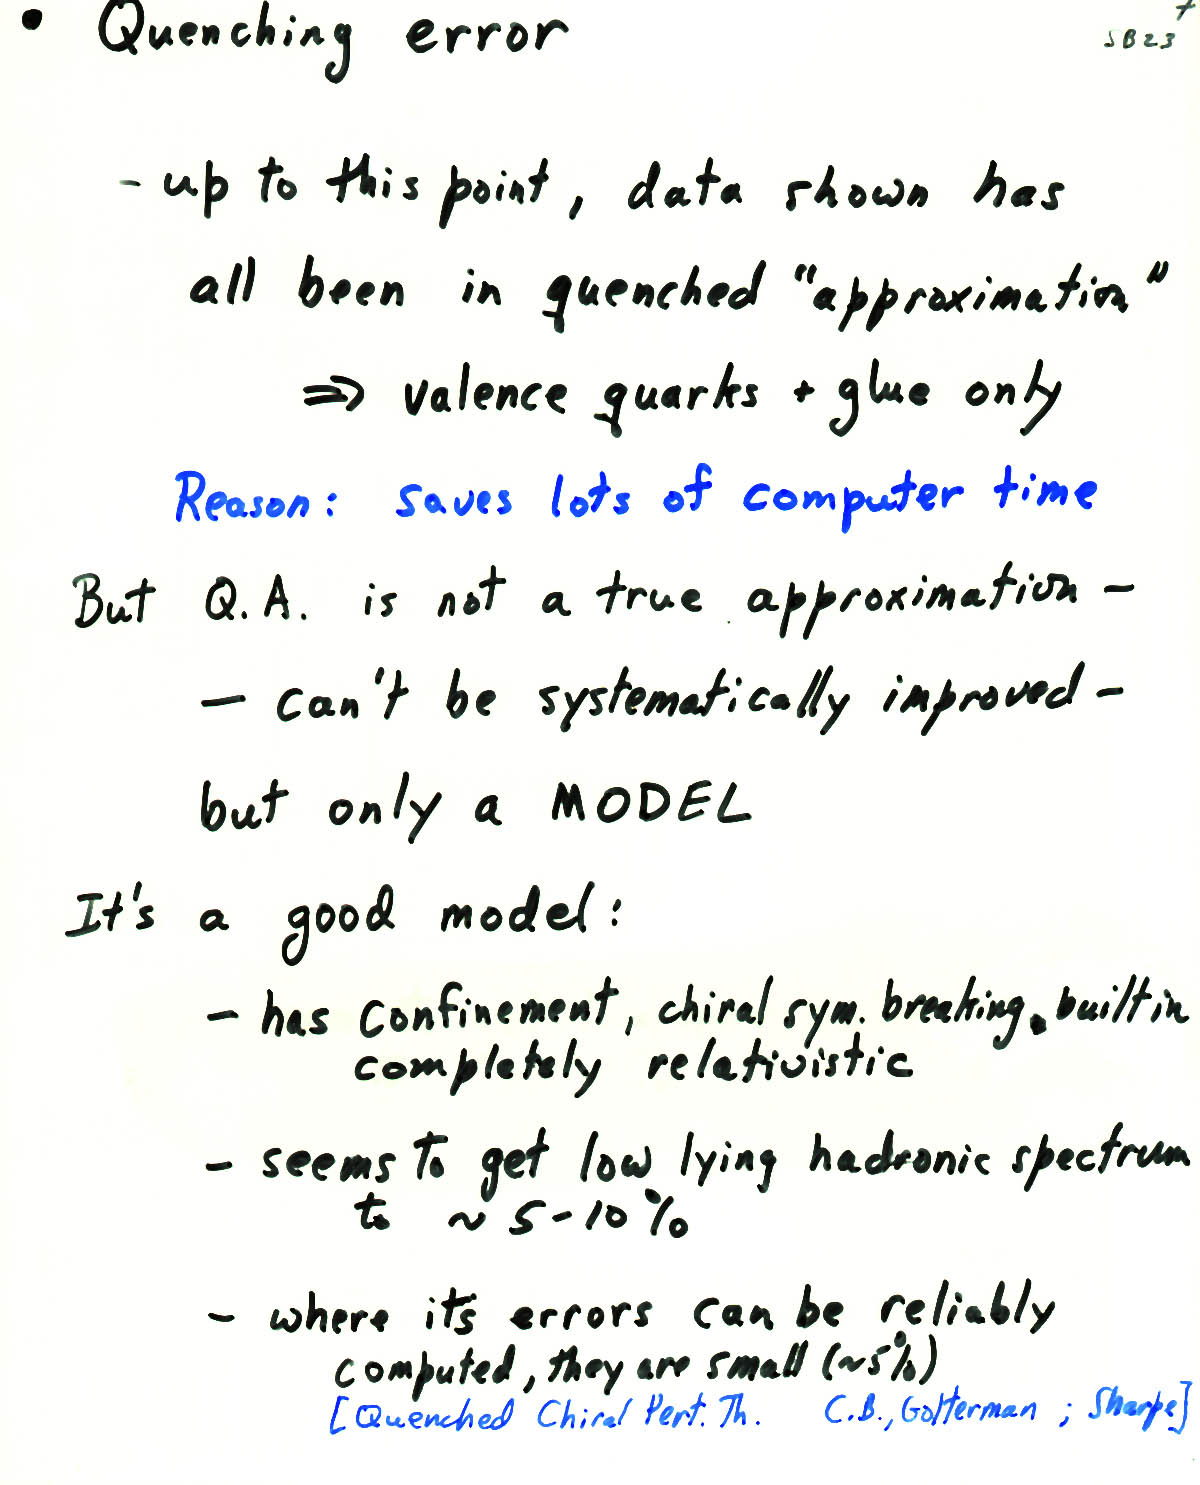 • Quenching error
SB23
- up to this point, data shown has
all been in quenched "approximation"
⇒ valence quarks + glue only
Reason: saves lots of computer time
But Q.A. is not a true approximation -
- can't be systematically improved -
but only a MODEL
It's a good model:
- has confinement, chiral sym. breaking, built in
completely relativistic
- seems to get low lying hadronic spectrum
to ~ 5-10%
- where it's errors can be reliably
computed, they are small (~5%)
[Quenched Chiral Pert. Th. C.B., Golterman ; Sharpe]